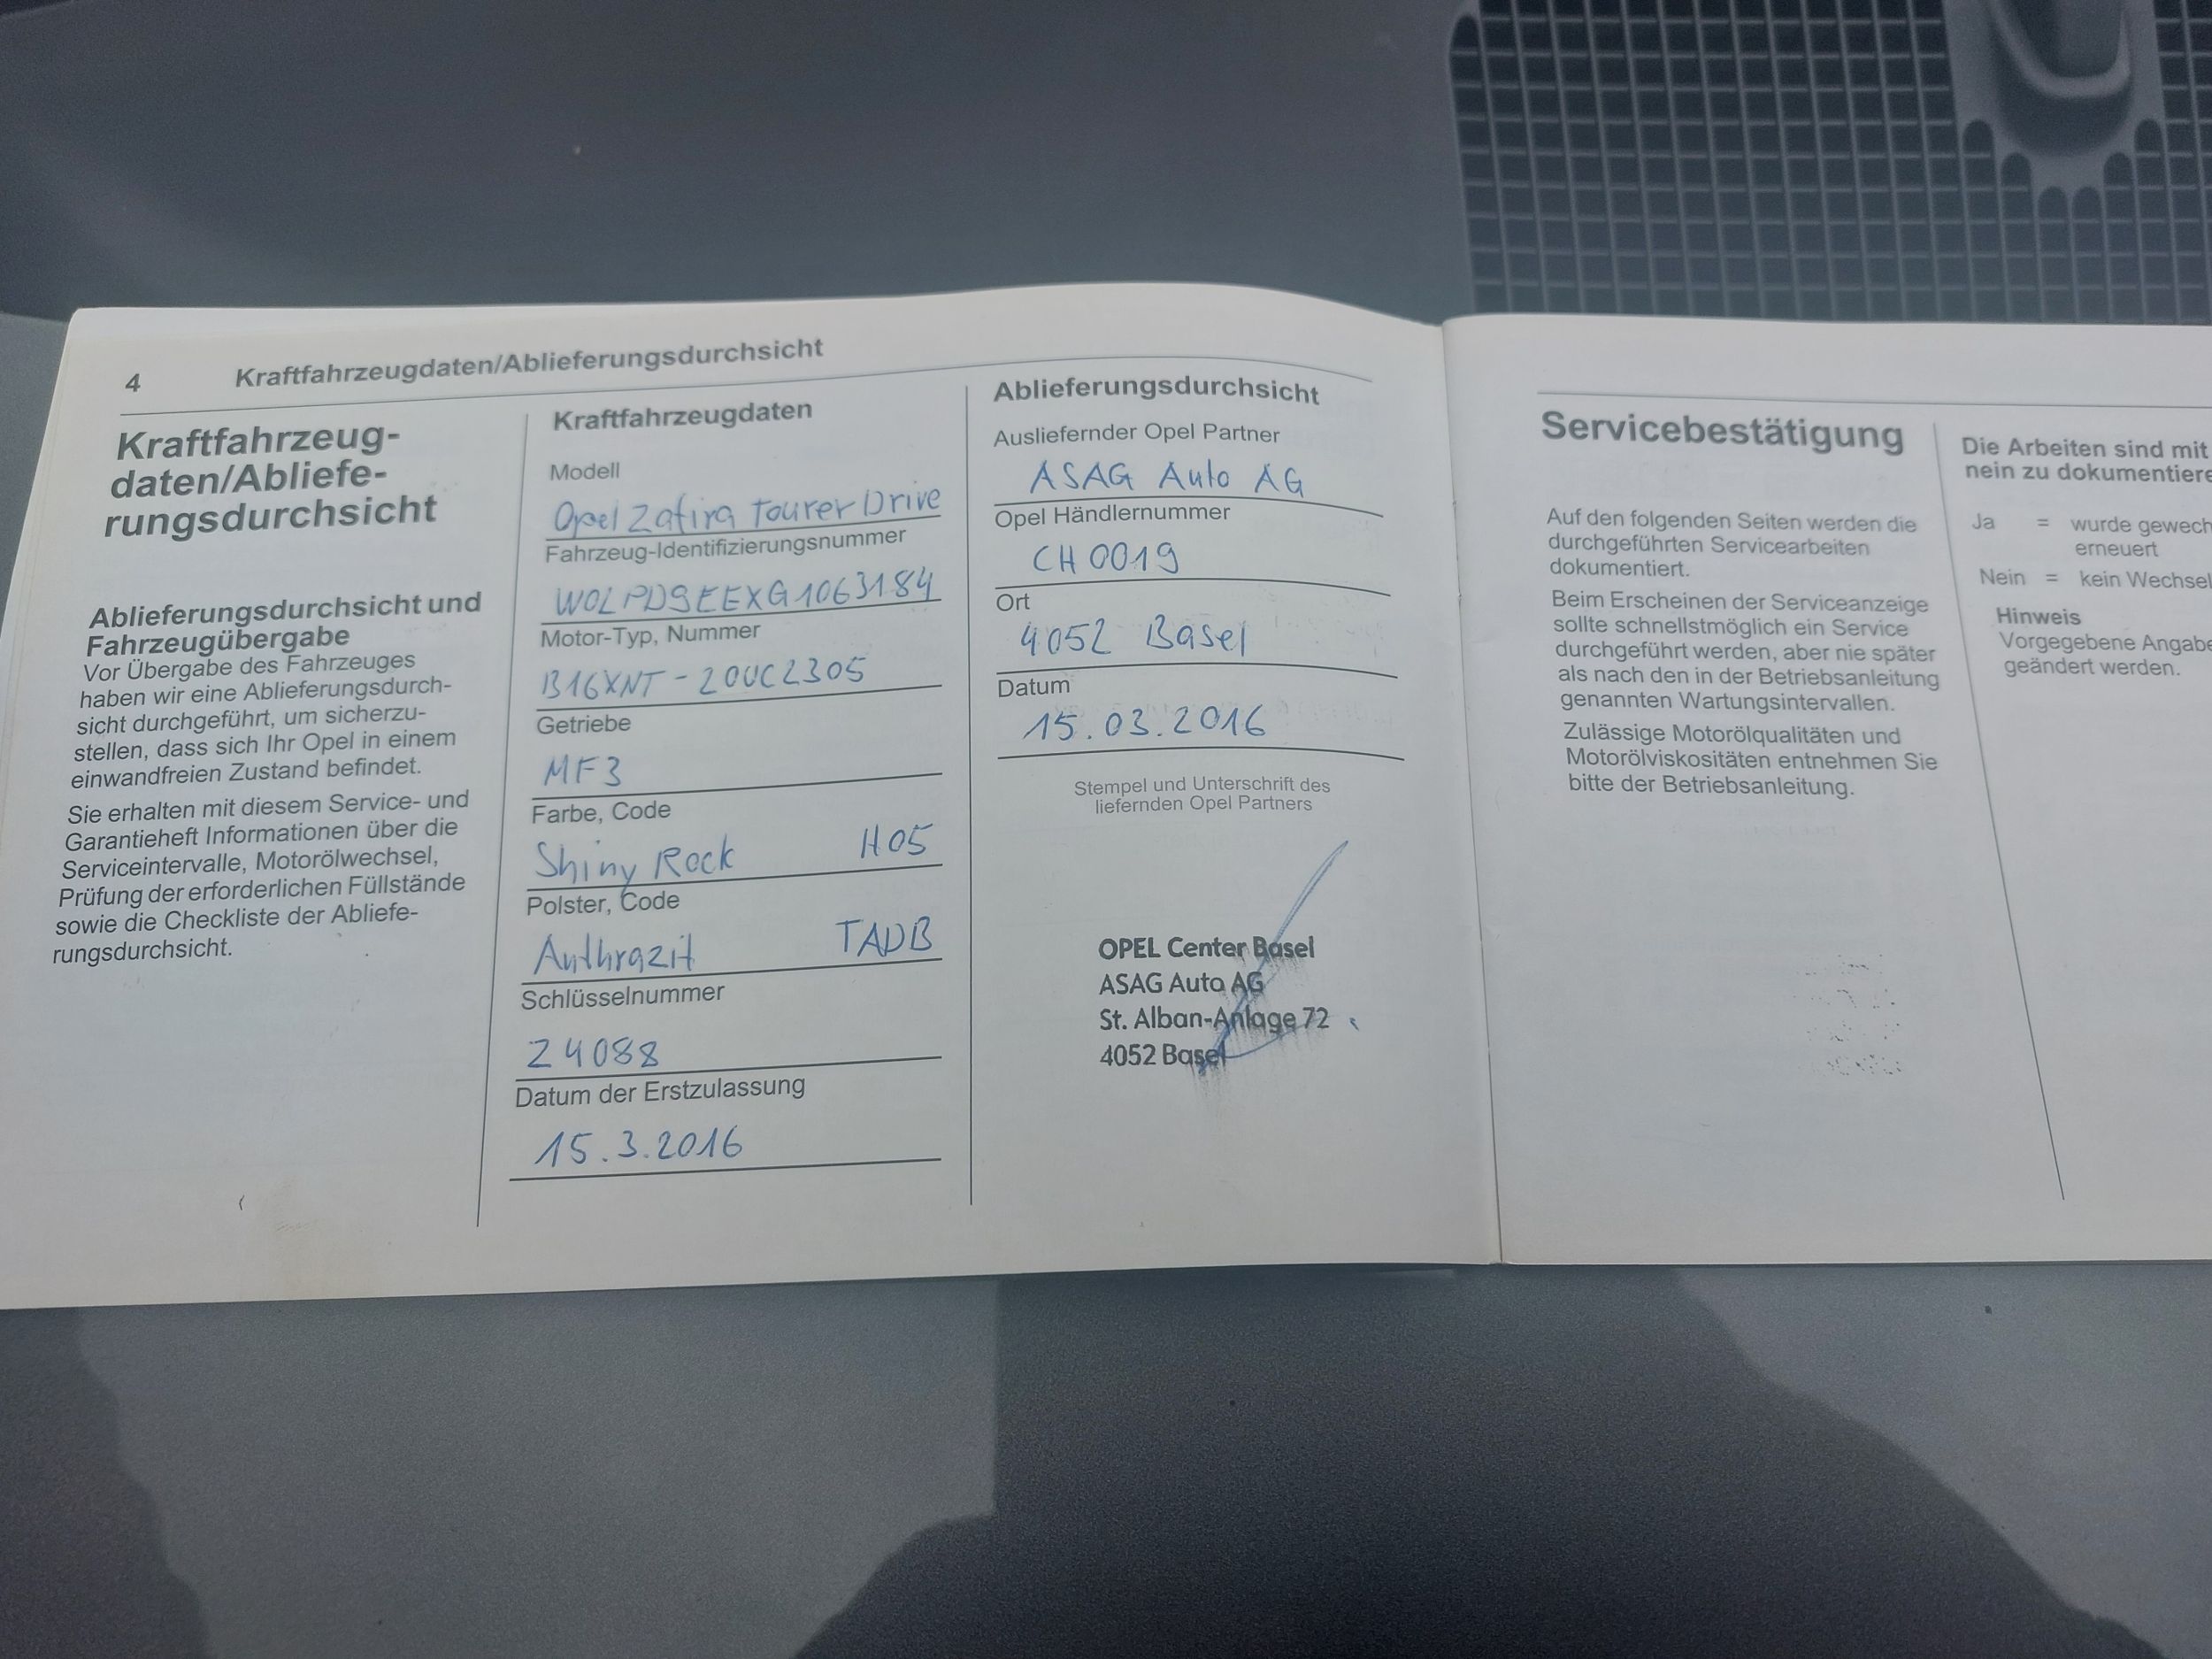 4 Kraftfahrzeugdaten/Ablieferungsdurchsicht
Kraftfahrzeug-
daten/Abliefe-
rungsdurchsicht
Ablieferungsdurchsicht und
Fahrzeugübergabe
Vor Übergabe des Fahrzeuges
haben wir eine Ablieferungsdurch-
sicht durchgeführt, um sicherzu-
stellen, dass sich Ihr Opel in einem
einwandfreien Zustand befindet.
Sie erhalten mit diesem Service- und
Garantieheft Informationen über die
Serviceintervalle, Motorölwechsel,
Prüfung der erforderlichen Füllstände
sowie die Checkliste der Abliefe-
rungsdurchsicht.
Kraftfahrzeugdaten
Modell
Opel Zafira Tourer Drive
Fahrzeug-Identifizierungsnummer
W0LPD9EEXG1063184
Motor-Typ, Nummer
B16XNT - 20UC2305
Getriebe
MF3
Farbe, Code
Shiny Rock H05
Polster, Code
Anthrazit TADB
Schlüsselnummer
Z4088
Datum der Erstzulassung
15.3.2016
Ablieferungsdurchsicht
Ausliefernder Opel Partner
ASAG Auto AG
Opel Händlernummer
CH 0019
Ort
4052 Basel
Datum
15.03.2016
Stempel und Unterschrift des
liefernden Opel Partners
OPEL Center Basel
ASAG Auto AG
St. Alban-Anlage 72
4052 Basel
Servicebestätigung
Auf den folgenden Seiten werden die
durchgeführten Servicearbeiten
dokumentiert.
Beim Erscheinen der Serviceanzeige
sollte schnellstmöglich ein Service
durchgeführt werden, aber nie später
als nach den in der Betriebsanleitung
genannten Wartungsintervallen.
Zulässige Motorölqualitäten und
Motorölviskositäten entnehmen Sie
bitte der Betriebsanleitung.
Die Arbeiten sind mit
nein zu dokumentiere
Ja = wurde gewech
erneuert
Nein = kein Wechsel
Hinweis
Vorgegebene Angabe
geändert werden.